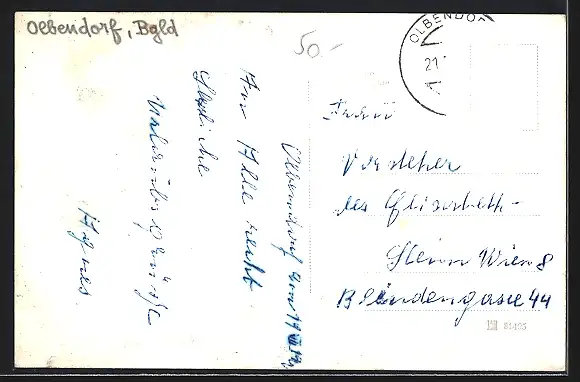 Olbendorf, Bgld
50.-
OLBENDOR
21.
Olbendorf am 17
An Alle recht
herzliche
Urlaubsgrüße
Agnes.
Frau
Vorsteher
des Elisabeth-
Heim Wien 8
Blindengasse 44